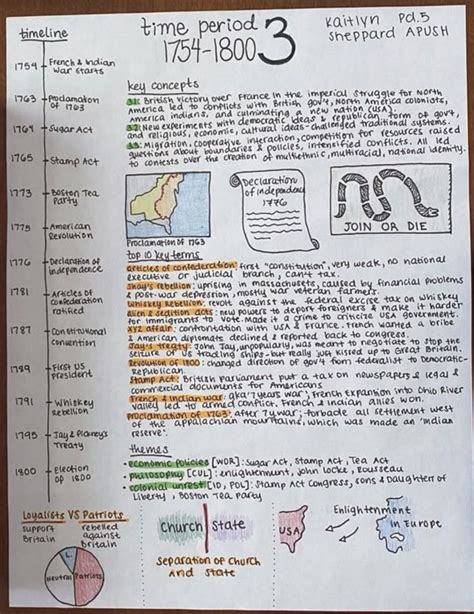 timeline
time period 3
1754-1800
Kaitlyn Pd.5
Sheppard APUSH
1754 French & Indian
War starts
1763 Proclamation
of 1763
1764 Sugar Act
1765 Stamp Act
1773 Boston Tea
Party
1775 American
Revolution
1776 Declaration of
Independence
1781 Articles of
Confederation
ratified
1787 Constitutional
Convention
1789 First US
President
1791 Whiskey
Rebellion
1795 Jay & Pickney's
Treaty
1800 Election
of 1800
key concepts
3.1: British victory over France in the imperial struggle for North
America led to conflicts with British gov't, North America colonists,
America indians, and culminating a new nation (USA).
3.2: New experiments with democratic ideas & republican form of govt,
and religious, economic, cultural ideas - challenged traditional systems.
3.3: Migration, cooperative interaction, competition for resources raised
questions about boundaries & policies, intensified conflicts. All led
to contests over the creation of multiethnic, multiracial, national identity.
Proclamation of 1763
Declaration
of independence
1776
JOIN OR DIE
top 10 key terms
articles of confederation: first "constitution", very weak, no national
executive or judicial branch, can't tax.
Shay's rebellion: uprising in massachusetts, caused by financial problems
& post-war depression; mostly war veteran farmers.
Whiskey Rebellion: revolt against the federal excise tax on whiskey
Alien & sedition acts: new powers to deport foreigners & make it harder
for immigrants to vote. made a crime to criticize USA government.
XYZ affair: confrontation with USA & France. french wanted a bribe
& American diplomats declined & reported back to congress.
Jay's treaty: John Jay, unpopular, was meant to negotiate to stop the
seizure of US trading ships - but really just kissed up to Great Britain.
Revolution of 1800: changed direction of gov't from federalist to Democratic-
Republican.
Stamp Act: British Parliament put a tax on newspapers & legal &
commercial documents for Americans
French & Indian war: aka '7 years war'; French expansion into Ohio River
valley led to armed conflict. French & indian allies won.
Proclamation of 1763: after 7y war; forbade all settlement west
of the appalachian mountains, which was made an 'indian
reserve'.
themes
• economic policies [WOR]: Sugar Act, Stamp Act, Tea Act
• philosophy [CUL]: enlightenment, john locke, Rousseau
• colonial unrest [ID, POL]: Stamp Act Congress, sons & Daughter of
Liberty, Boston Tea Party
Loyalists VS Patriots
support
Britain
rebelled
against
Britain
L
Neutral
Patriots
church state
Separation of Church
And State
Enlightenment
USA
in Europe